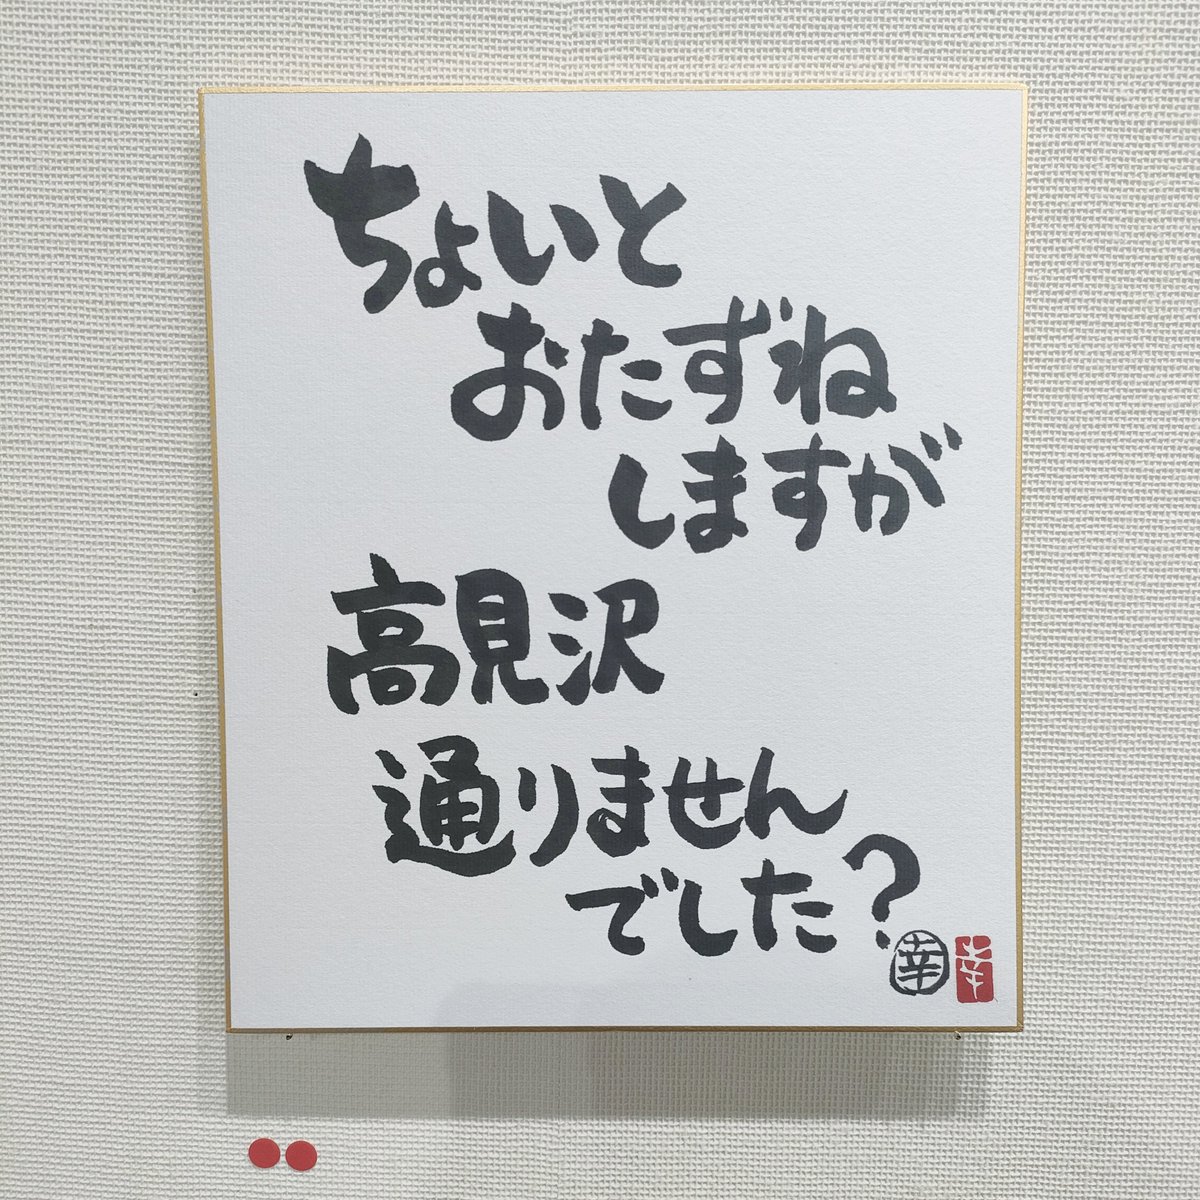 ちょいと
おたずね
しますが
高見沢
通りません
でした?
幸
幸